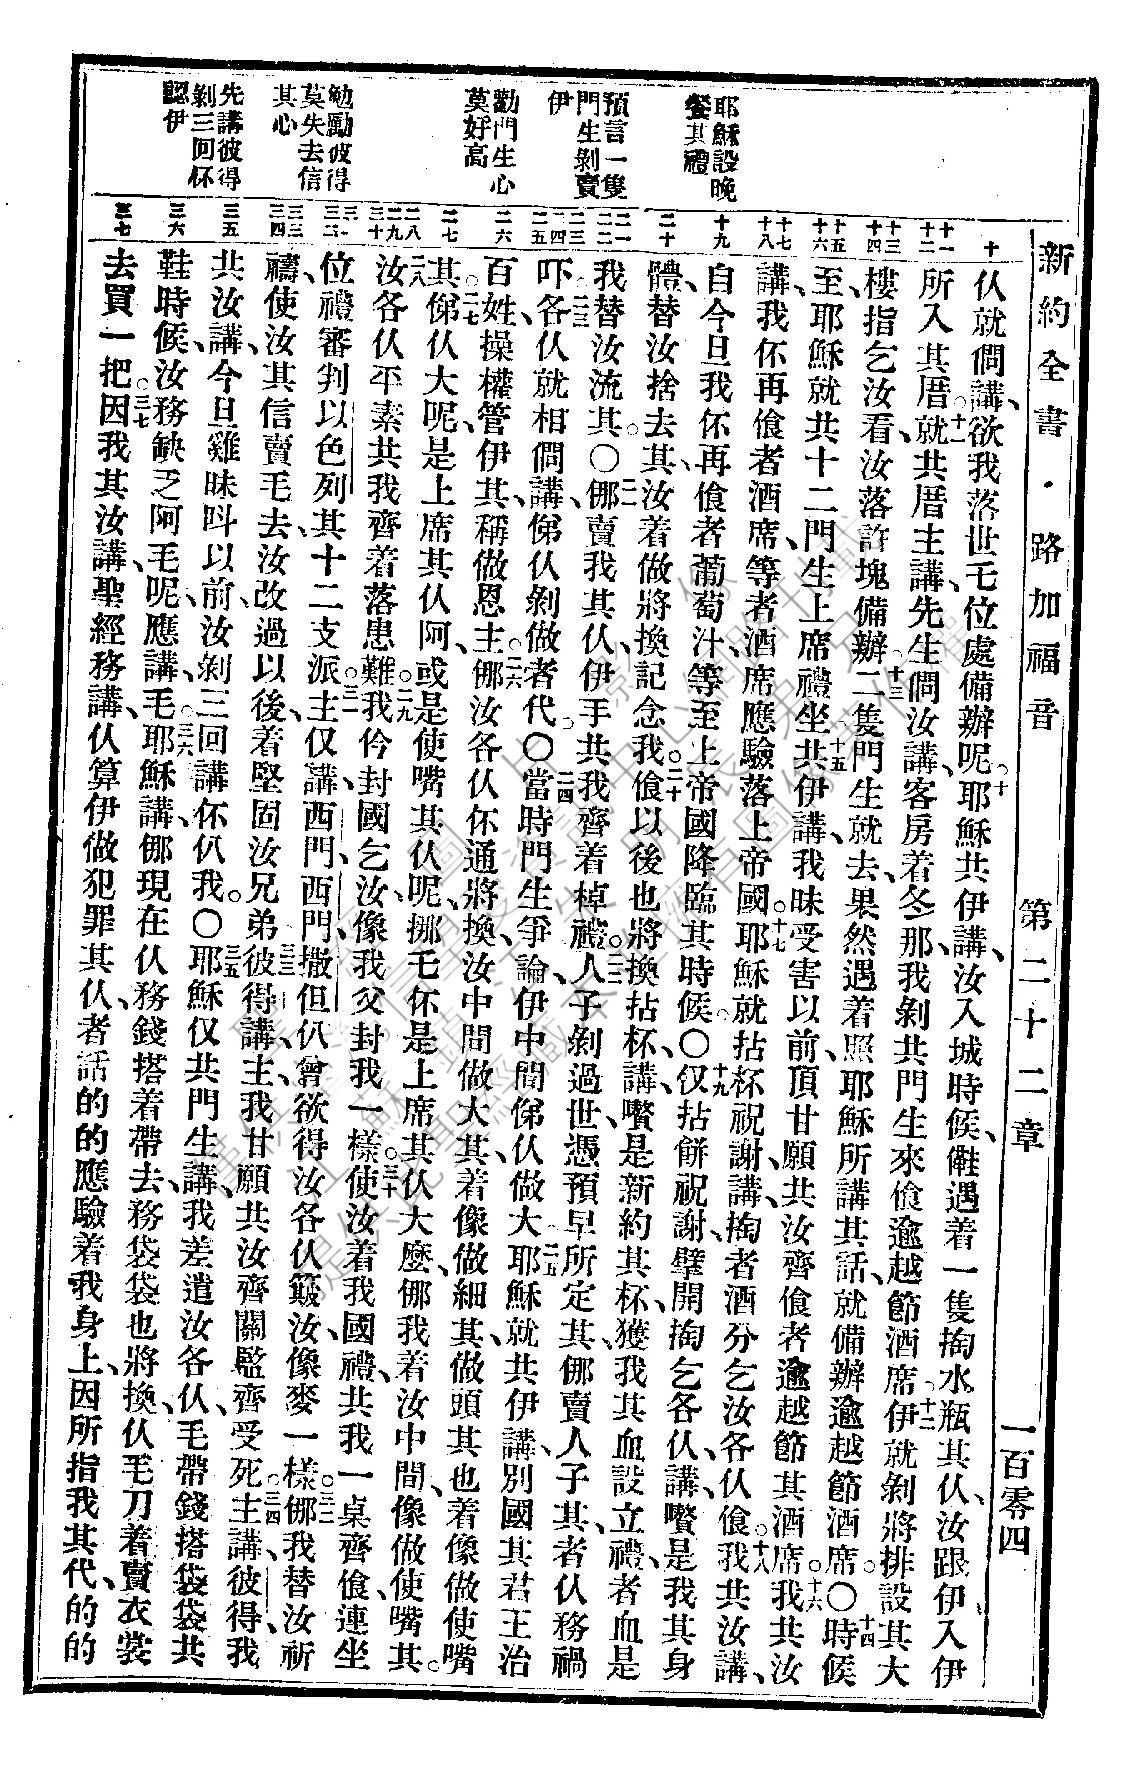 新約全書・路加福音　第二十二章　一百零四
耶穌設晚
餐其禮
預言一隻
門生剝賣
伊
勸門生心
莫好高
勉勵彼得
莫失去信
其心
先講彼得
剝三回伓
認伊
十
十一
十二
十三
十四
十五
十六
十七
十八
十九
二十
二一
二二
二四
二五
二六
二七
二八
二九
三十
三一
三二
三三
三四
三五
三六
三七
仈就僩講、欲我落世乇位處備辦呢。十耶穌共伊講、汝入城時候、礙遇着一隻掏水瓶其仈、汝跟伊入伊
所入其厝、十一就共厝主講、先生僩汝講、客房着冬那、我剝共門生來飡逾越節酒席。十二伊就剝將排設其大
樓指乞汝看、汝落許塊備辦。十三二隻門生就去、果然遇着照耶穌所講其話、就備辦逾越節酒席。〇十四時候
至、耶穌就共十二門生上席禮坐。十五共伊講、我昧受害以前、頂甘願共汝齊飡者逾越節其酒席、十六我共汝
講、我伓再飡者酒席、等者酒席應驗落上帝國。十七耶穌就拈杯祝謝、講、掏者酒分乞汝各仈飡、十八我共汝講、
自今旦我伓再飡者葡萄汁、等至上帝國降臨其時候。〇十九仅拈餅祝謝、擘開掏乞各仈、講、嚽是我其身
體、替汝捨去其、汝着做將換記念我。二十飡以後也將換拈杯、講、嚽是新約其杯、獲我其血設立禮、者血是
我替汝流其。〇二一㑚賣我其仈、伊手共我齊着棹禮。二二人子剝過世、憑預早所定其、㑚賣人子其者仈務禍
吓。二三各仈就相僩講、俤仈剝做者代。〇二四當時門生爭論、伊中間俤仈做大。二五耶穌就共伊講、別國其君王治
百姓、操權管伊其、稱做恩主。二六㑚汝各仈伓通將換、汝中間做大其着像做細其、做頭其也着像做使嘴
其。二七俤仈大呢、是上席其仈阿、或是使嘴其仈呢、挪乇伓是上席其仈大麼、㑚我着汝中間像做使嘴其。
二八汝各仈平素共我齊着落患難、二九我仱封國乞汝、像我父封我一樣。三十使汝着我國禮、共我一桌齊飡、連坐
位禮審判以色列其十二支派。三一主仅講、西門、西門、撒但仈曾欲得汝各仈簸汝像麥一樣。三二㑚我替汝祈
禱、使汝其信賣毛去、汝改過以後着堅固汝兄弟。三三彼得講、主、我甘願共汝齊關監、齊受死。三四主講、彼得、我
共汝講、今旦雞昧叫以前、汝剝三回講伓仈我。〇三五耶穌仅共門生講、我差遣汝各仈、毛帶錢搭袋袋共
鞋時候、汝務缺乏阿毛呢、應講、毛。三六耶穌講、㑚現在仈務錢搭着帶去、務袋袋也將換、仈毛刀着賣衣裳
去買一把。三七因我共汝講、聖經務講、仈算伊做犯罪其仈、者話的的應驗着我身上、因所指我其代、的的